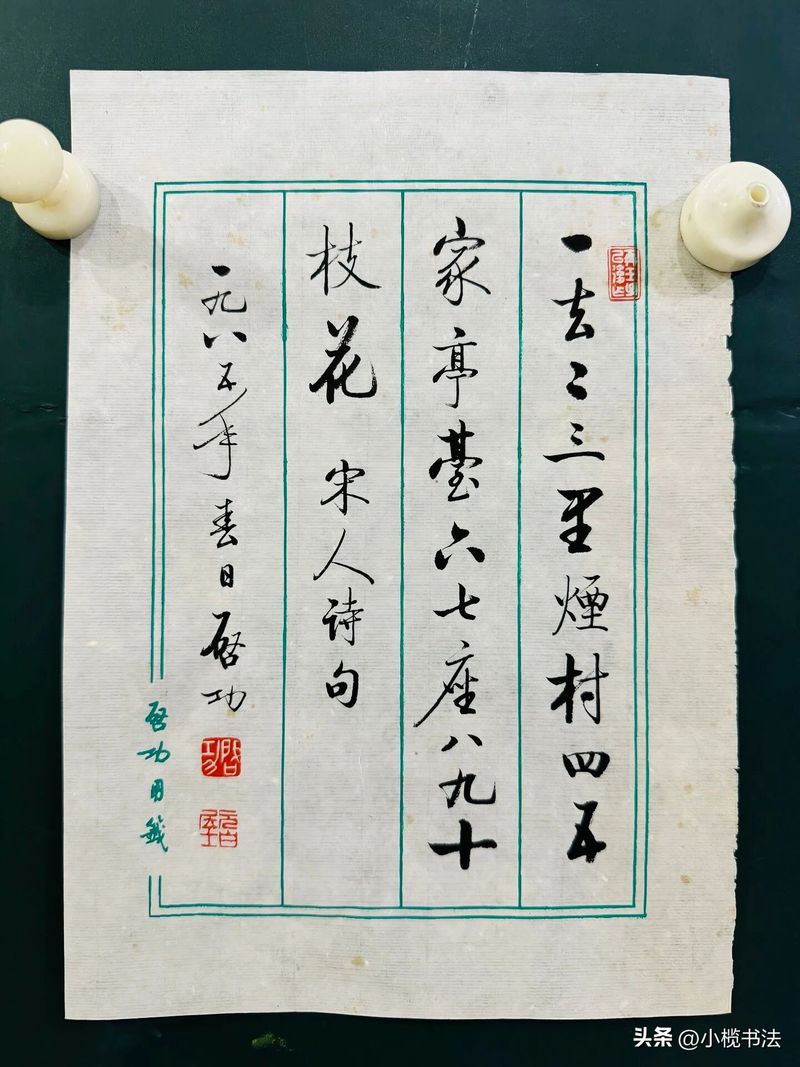 一去二三里煙村四五
家亭臺六七座八九十
枝花 宋人诗句
一九八五年春日启功
启功用箋
头条 @小榄书法